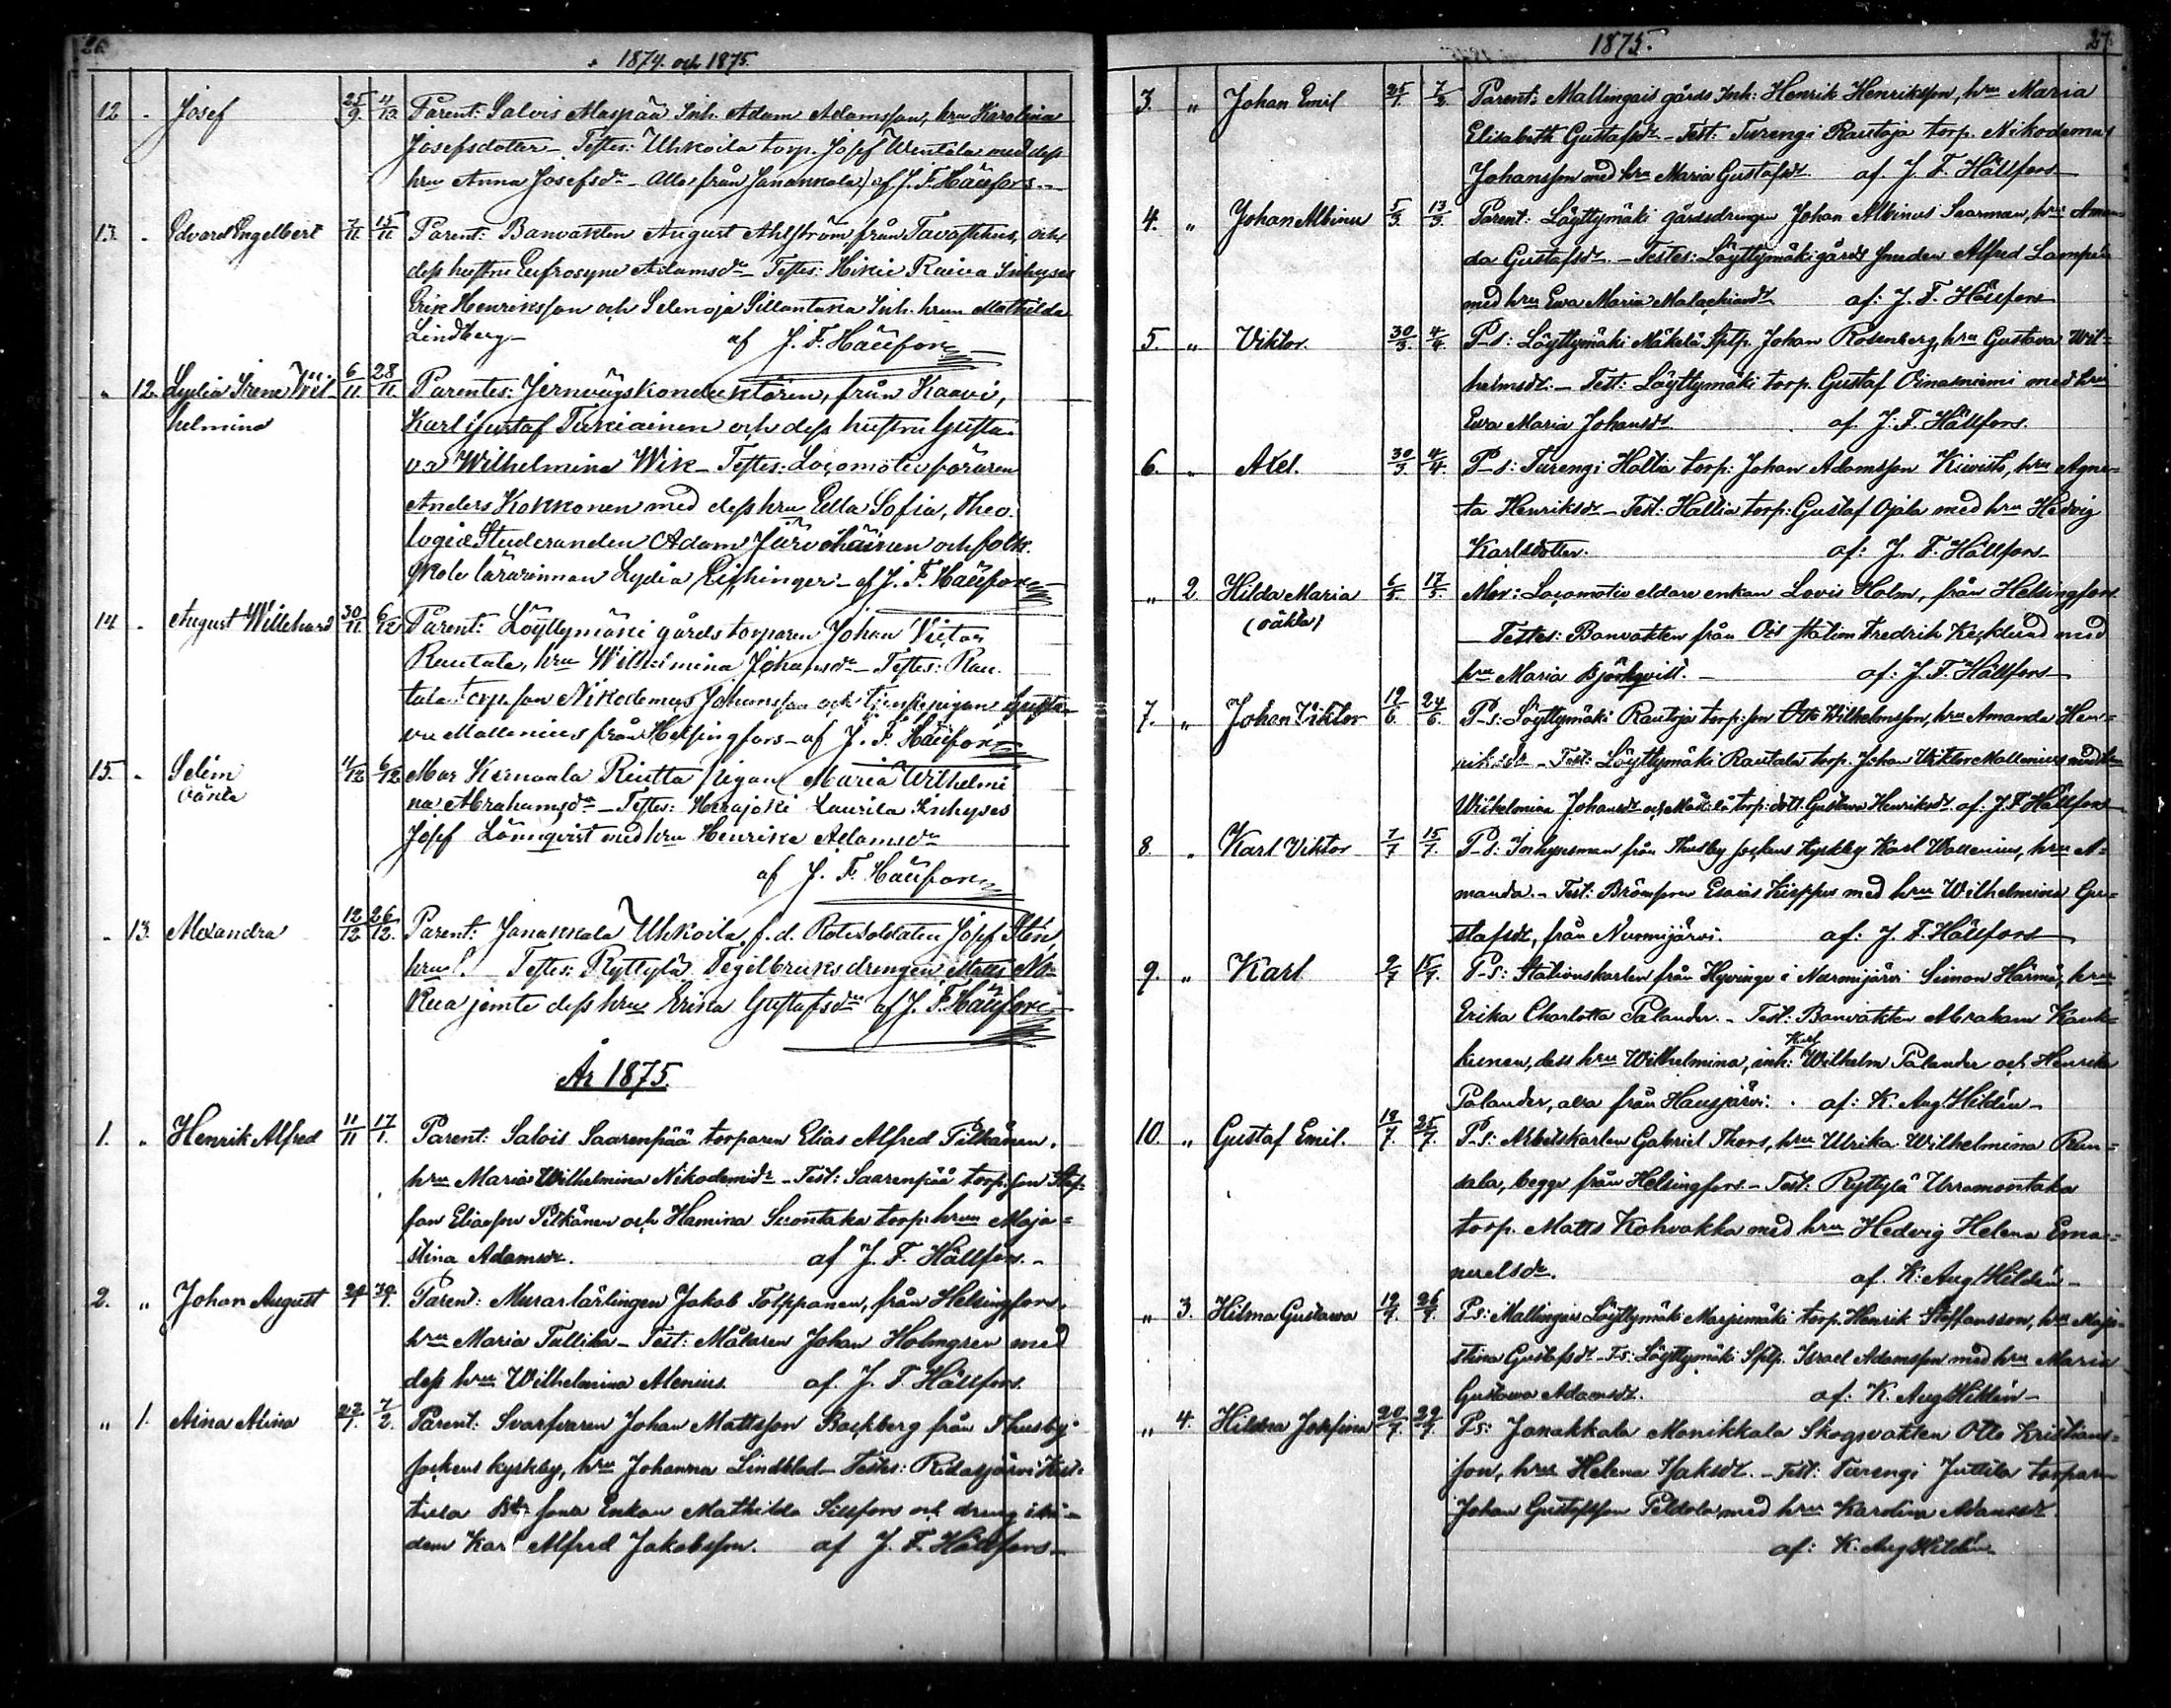 26.
1874. och 1875.
12 - Josef 25/9. 4/10. Parent: Salois Alaspää Inh. Adam Adamsson, hru Karolina
Josefsdotter - Testes: Uhkoila torp. Josef Wentola med dess
hru Anna Josefsdr - Alla från Janakkala/ af J. F. Hällfors
13. - Edvard Engelbert 7/11 15/11 Parent: Banvakten August Ahlström från Tavastehus, och
dess hustru Eufrosyne Adamsdr Testes: Hikiä Inhyses
Erik Henriksson och Selenoja Sillantaka Inh. hrun Mathilda
Lindberg - af J. F. Hällfors
" 12. Lydia Irene Wil- 6/11. 28/11. Parentes: Jernvägskonduktören, från Kaavi,
helmina Karl Gustaf Tiikiainen och dess hustru Gusta-
va Wilhelmina Wik - Testes: Locomotivföraren
Anders Kokkonen med dess hru Ella Sofia, Theo-
logiæ Studeranden Adam Järveläinen och folk-
skole lärarinnan Lydia - af J. F. Hällfors
14 - August Willehard 30/11 6/12 Parent: Löyttymäki gårds torparen Johan Victor
Rautala, hru Wilhelmina Johansdr - Testes: Rau-
tala torp. son Nikodemus Johansson och tjenstepigan Gusta-
va Mallenius från Helsingfors - af J. F. Hällfors
15. - Selim 4/12 6/12 Mor Kernaala Riutta pigan Maria Wilhelmi
oäkta na Abrahamsdr - Testes: Laurila Inhyses
Josef Lönnqvist med hru Henrika Adamsdr
af J. F. Hällfors
- 13. Alexandra 12/12 26/12. Parent: Janakkala Uhkoila f.d. Rotesoldaten Josef Stén,
hru Testes: Ryttylä Tegelbruksdrengen Matts No-
kua jemte dess hru Erika Gustafsdr af J. F. Hällfors
År 1875.
1. " Henrik Alfred 11/11 17/1. Parent: Salois Saarenpää torparen Elias Alfred Pitkänen,
hru Maria Wilhelmina Nikodemidr - Test: Saarenpää torp. son Stef-
fan Eliasson Pitkänen och Hamina Suontaka torp. hrun Maja-
stina Adamsdr. af J. F. Hällfors. -
2. " Johan August Parent: Murarlärlingen Jakob Tolppanen, från Helsingfors,
hru Maria Tullika - Test: Målaren Johan Holmgren med
dess hru Wilhelmina Alenius. af. J. F. Hällfors.
" 1. Aina Alina 22/1. 7/2. Parent: Svarfvaren Johan Mattsson Backberg från Thusby
sockens kyrkby, hru Johanna Lindblad - Testes: Ridasjärvi
Enkan Mathilda Sillfors och dreng ibi-
dem Karl Alfred Jakobsson. af J. F. Hällfors -
1875.
27.
3. " Johan Emil 25/1. 7/2. Parent: Mallingais gårds Inh: Henrik Henriksson, hru Maria
Elisabeth Gustafsdr - Test: Turengi Rautoja torp. Nikodemus
Johansson med hru Maria Gustafsdr. af. J. F. Hällfors
4. " Johan Albinus 5/3. 13/3. Parent: Löyttymäki gårdsdrengen Johan Albinus Saarman, hru Aman-
da Gustafsdr. - Testes: Löyttymäki gårds smeden Alfred Lampén
med hru Ewa Maria Malachiasdr. af: J. F. Hällfors
5. " Viktor. 30/3. 4/4. P-s: Löyttymäki Mäkelä Splp. Johan Rosenberg, hru Gustava Wil-
helmsdr. - Test: Löyttymäki torp. Gustaf Oinasniemi med hru
Ewa Maria Johansdr. af. J. F. Hällfors.
6. " Axel. 30/3. 4/4. P-s: Turengi Hallia torp: Johan Adamsson Kiwistö, hru Agne-
ta Henriksdr - Test: Hallia torp: Gustaf Ojala med hru Hedvig
Karlsdotter. af: J. F. Hällfors
" 2. Hilda Maria 6/5. 17/5. Mor: Locomotiv eldare enkan Lovis Holm, från Helsingfors
(oäkta) - Testes: Banvakten från Oit station Fredrik Kecklund med
hru Maria Björkqvist. - af: J. F. Hällfors
7. " Johan Viktor 19/6. 24/6. P-s: Löyttymäki Rautoja torp: son Otto Wilhelmsson, hru Amanda Hen-
riksdr - Test: Löyttymäki Rautala torp. Johan Viktor Mallenius med hru
Wilhelmina Johansdr och Mäkelä torp: dott. Gustava Henriksdr. af. J. F. Hällfors
8. " Karl Viktor 7/7 15/7. P-s: Inhysesman från Thusby sockens kyrkby Karl Wallenius, hru A-
manda. - Test: Esaias Kirppu med hru Wilhelmina Gu-
stafsdr, från Nurmijärvi. af: J. F. Hällfors
9. " Karl 9/7 15/7. P-s: Stationskarlen från Hyvinge i Nurmijärvi Simon Härmä, hru
Erika Charlotta Palander. - Test: Banvakten Abraham Kauk-
kunen, dess hru Wilhelmina, inh: Karl Wilhelm Palander och Henrika
Palander, alla från Hausjärvi. af: K. Aug Hildén -
10. " Gustaf Emil. 18/7. 25/7. P-s: Arbetskarlen Gabriel Thors, hru Ulrika Wilhelmina Ran-
sala, begge från Helsingfors. - Test: Ryttylä Urramontaka
torp. Matts Kohvakka med hru Hedvig Helena Ema-
nuelsdr. af. K: Aug Hildén -
" 3. Hilma Gustava P-s: Mallingais Löyttymäki Marjumäki torp. Henrik Steffansson, hru Maja-
stina Gustafsdr. T-s: Löyttymäki Splp. Israel Adamsson med hru Maria
Gustawa Adamsdr. af: K. Aug Hildén -
" 4. Hilda Josefina P-s: Janakkala Monikkala Skogsvakten Otto Kristians-
son, hru Helena Isaksdr. - Test: Turengi Juttila torparen
Johan Gustafsson Peldola, med hru Karolina Adamsdr.
af: K. Aug Hildén -